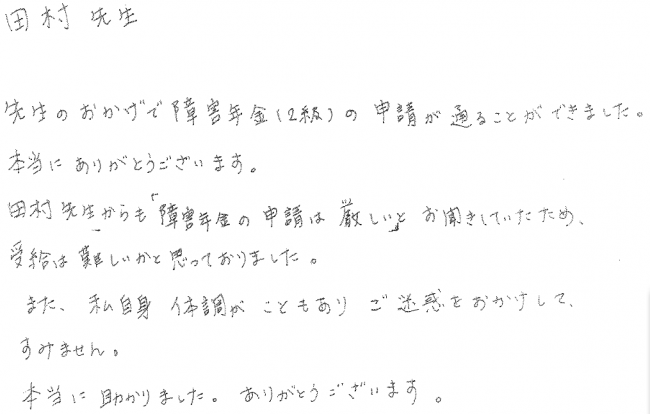 田村 先生
先生のおかげで障害年金(2級)の申請が通ることができました。
本当にありがとうございます。
田村先生からも「障害年金の申請は厳しい」とお聞きしていたため、
受給は難しいかと思っておりました。
また、私自身 体調が こともあり ご迷惑をおかけして、
すみません。
本当に助かりました。ありがとうございます。